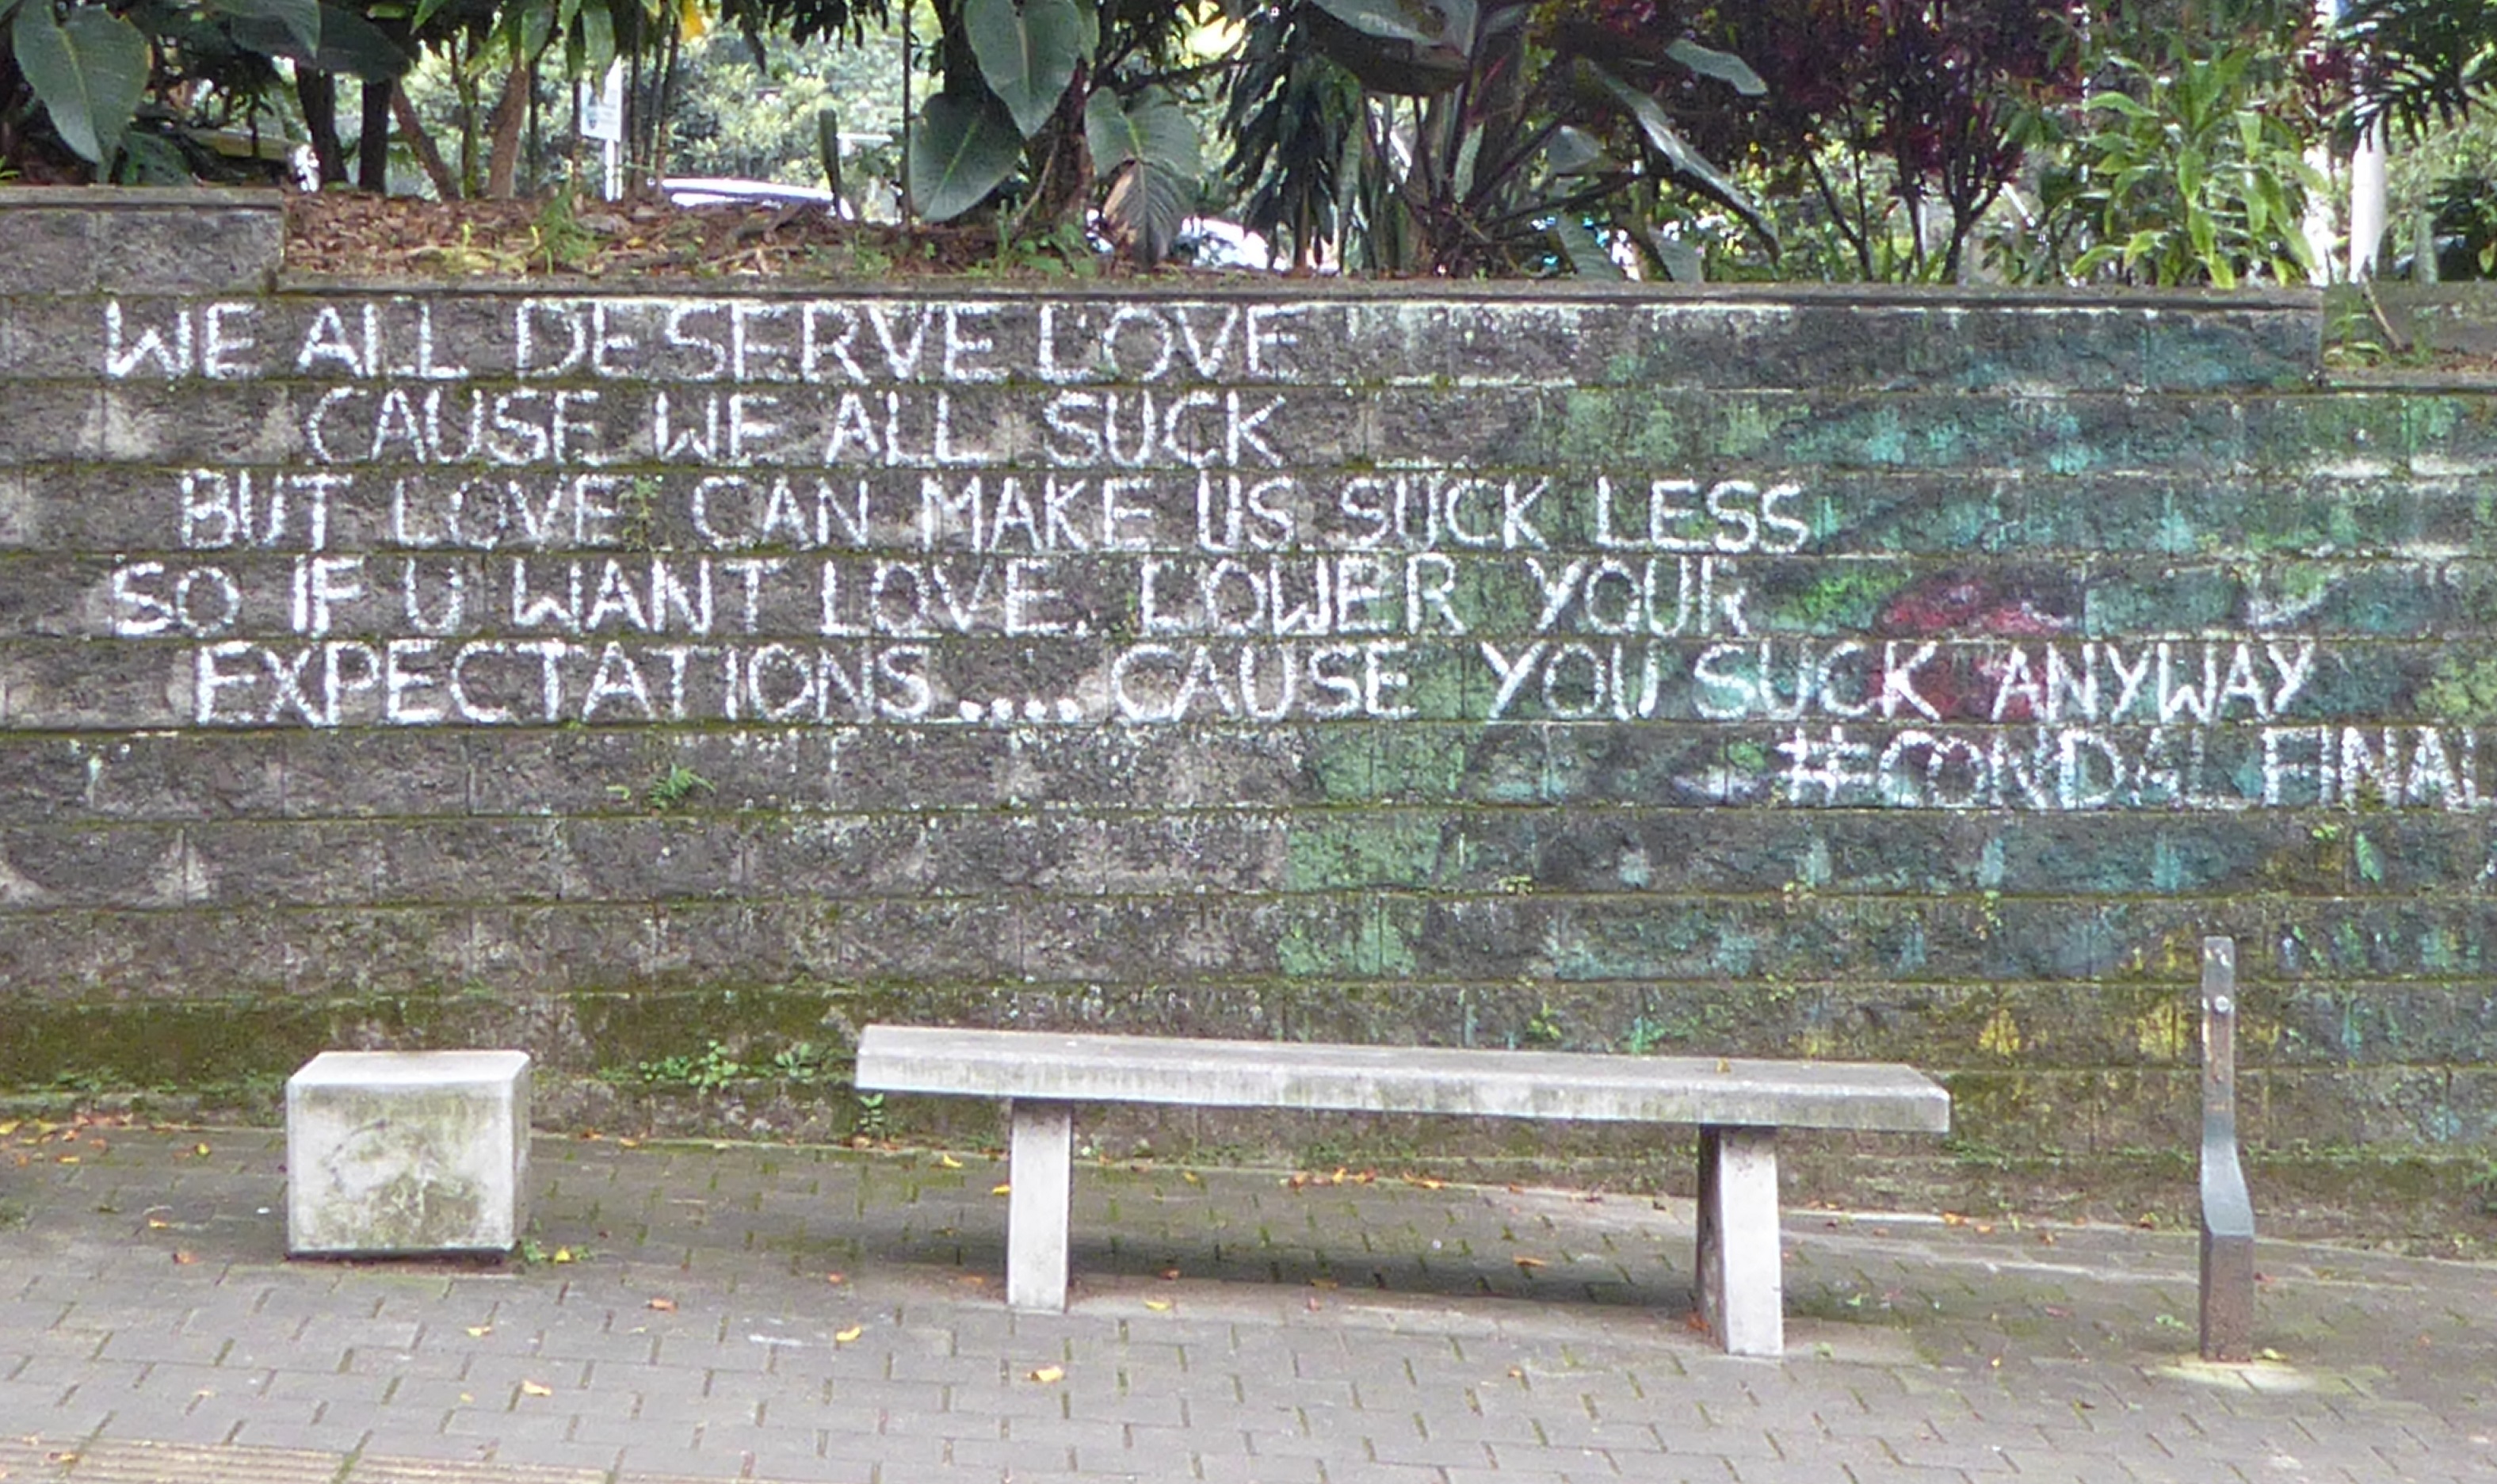 WE ALL DESERVE LOVE
CAUSE WE ALL SUCK
BUT LOVE CAN MAKE US SUCK LESS
SO IF U WANT LOVE. LOWER YOUR
EXPECTATIONS.... CAUSE YOU SUCK ANYWAY
#CONDAL FINAL